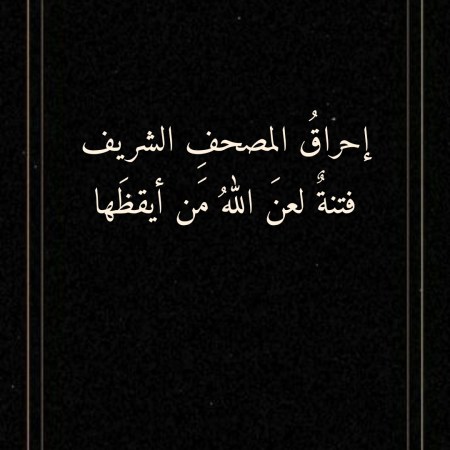 إحراقُ المصحفِ الشريف
فتنةٌ لعنَ اللهُ مَن أيقظَها